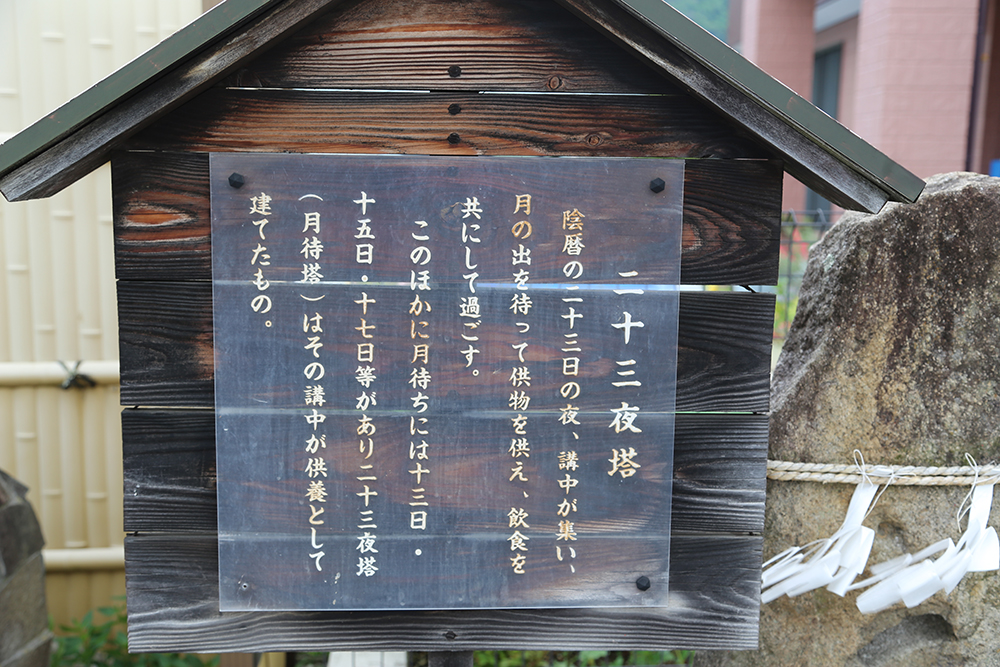 二十三夜塔
陰暦の二十三日の夜、講中が集い、
月の出を待って供物を供え、飲食を
共にして過ごす。
このほかに月待ちには十三日・
十五日・十七日等があり二十三夜塔
(月待塔)はその講中が供養として
建てたもの。